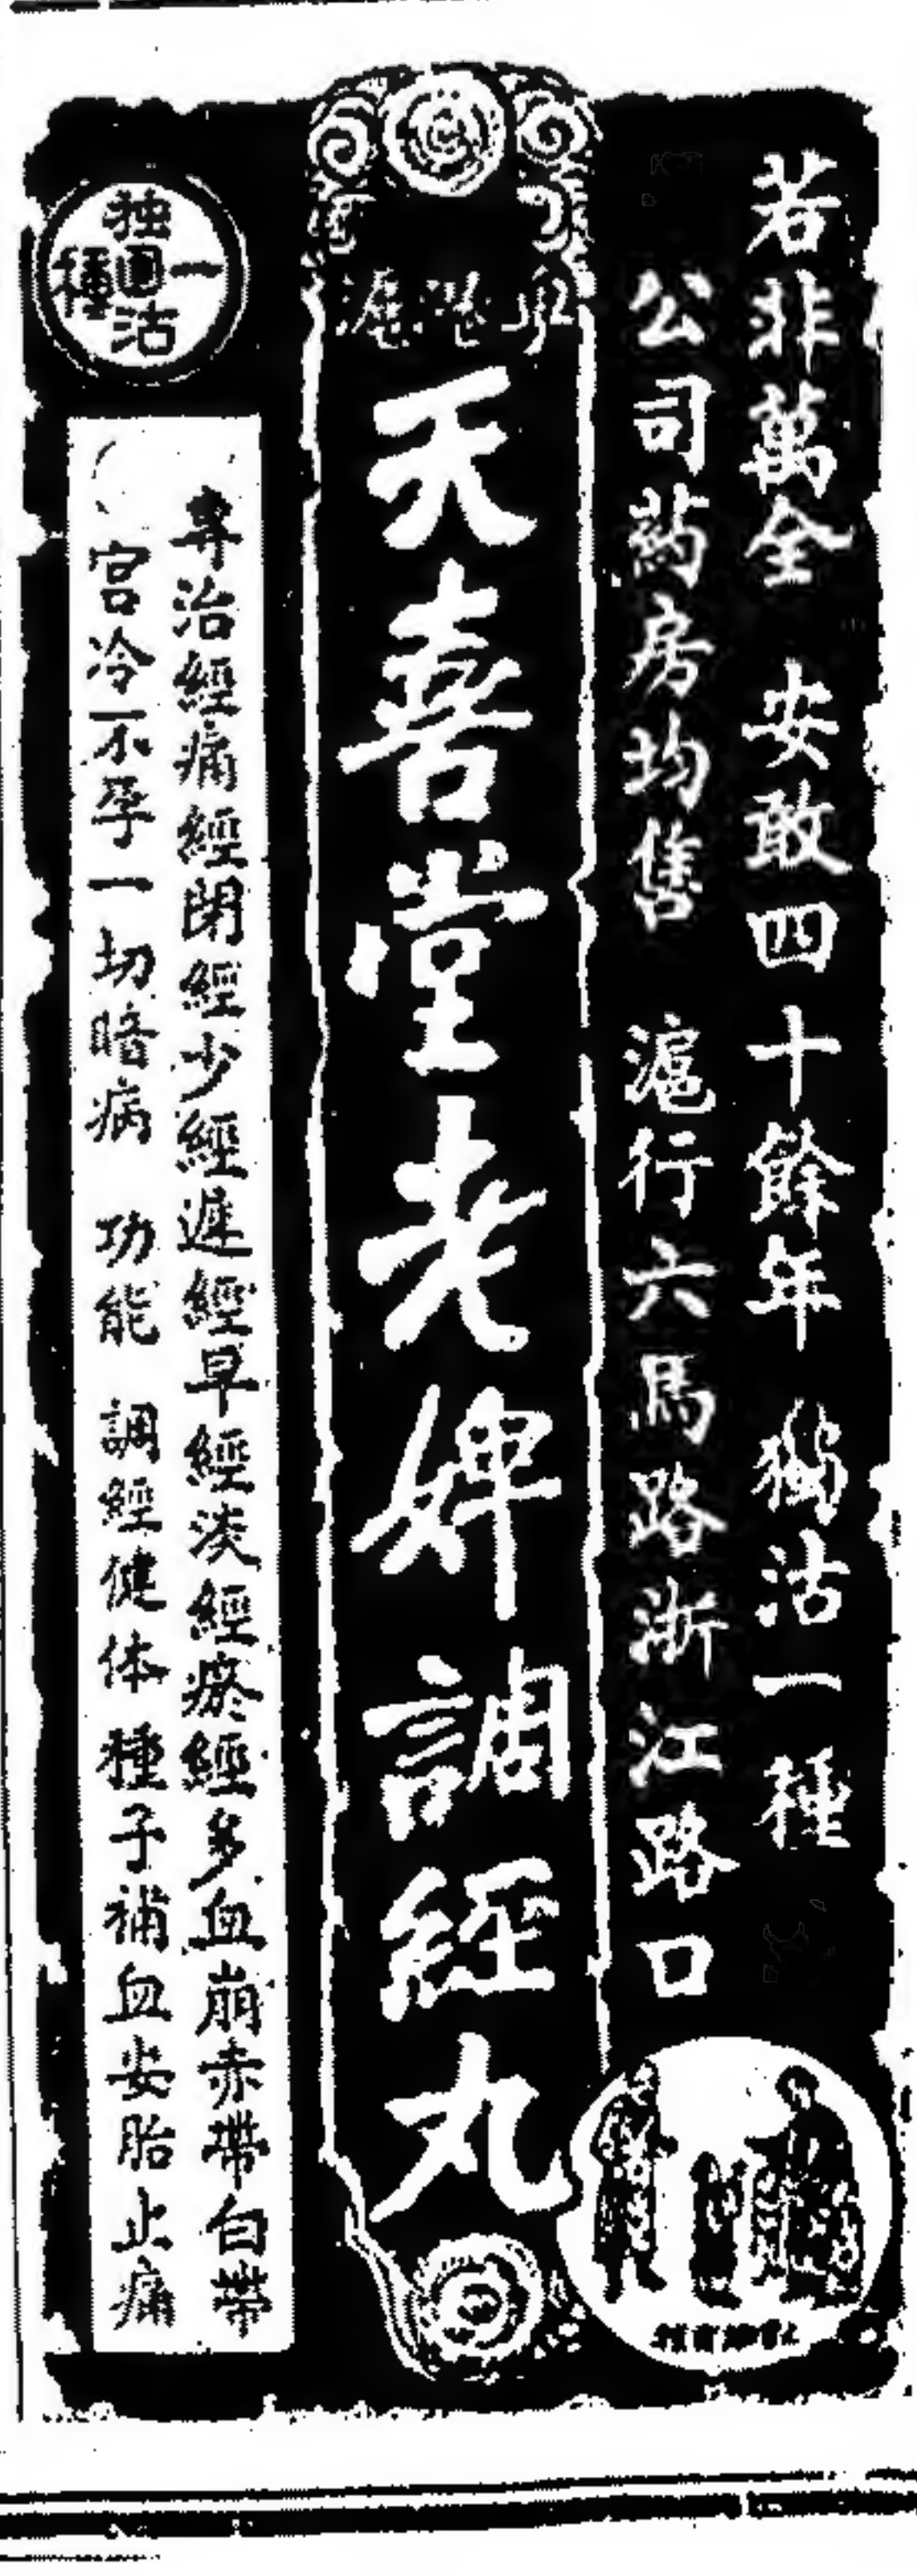 若非萬全 安敢四十餘年 獨沽一種
公司葯房均售 滬行六馬路浙江路口
天喜堂老婢調經丸
独沽一種
專治經痛經閉經少經遲經早經淡經瘀經多血崩赤帶白帶
宮冷不孕一切暗病 功能 調經健体種子補血安胎止痛